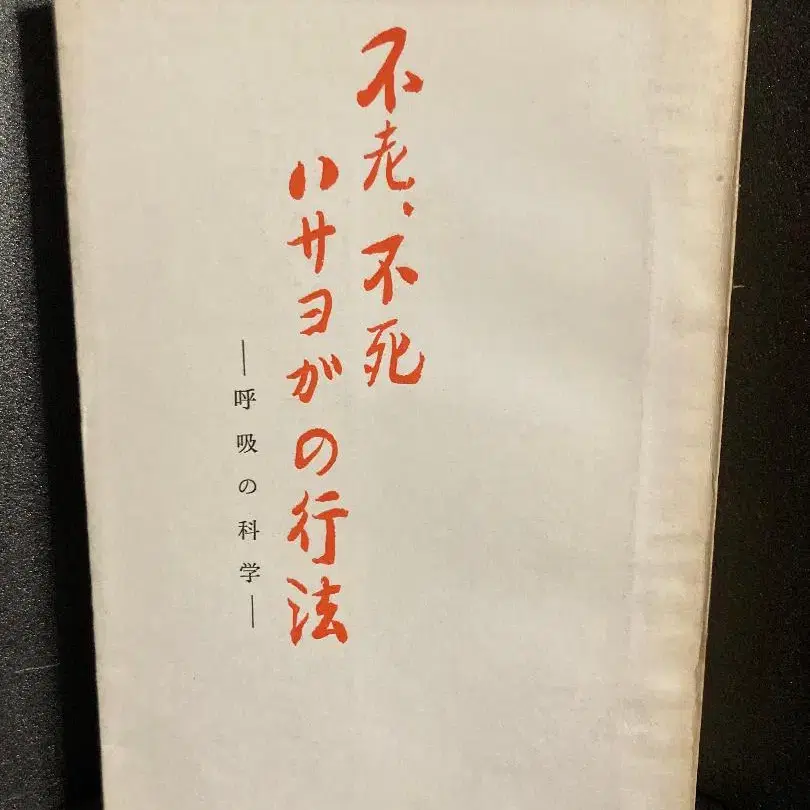 不老、不死
ハサヨガの行法
―呼吸の科学―